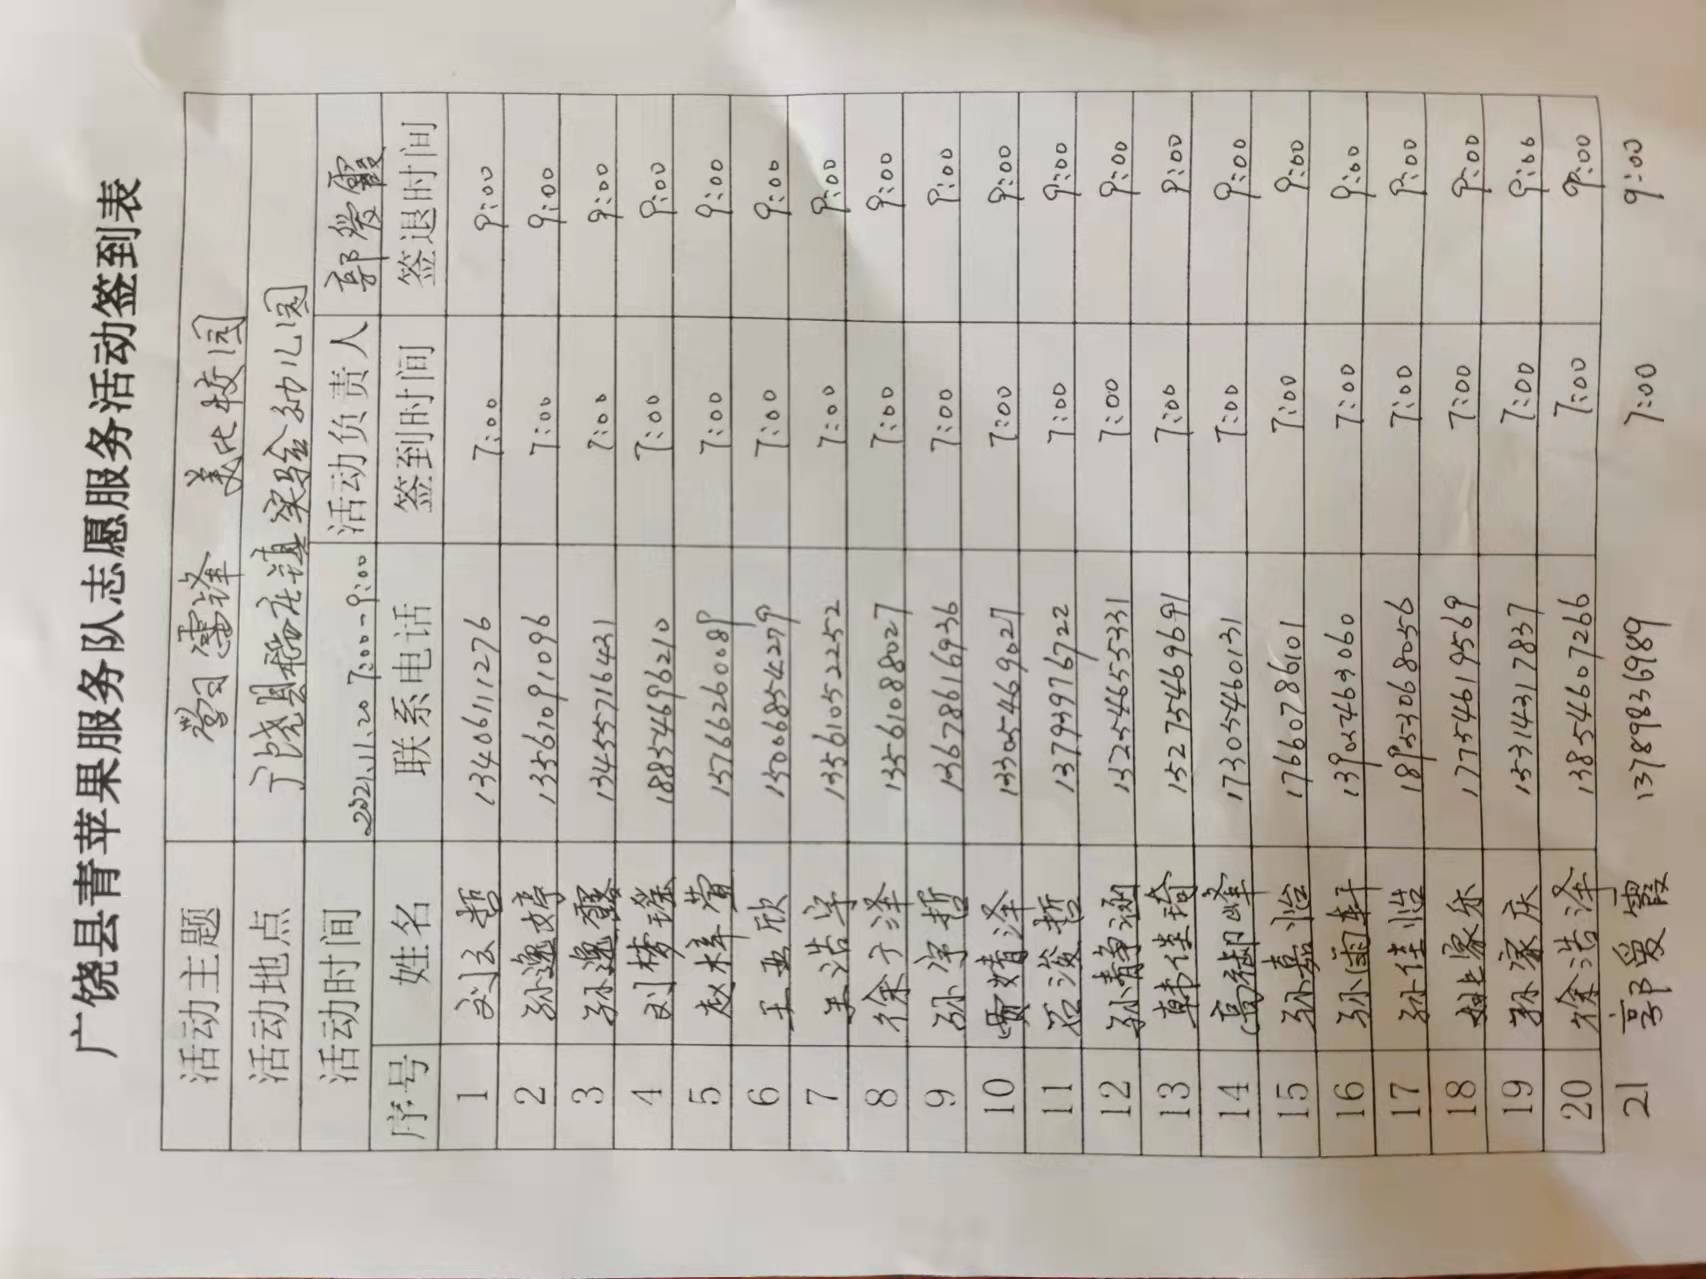 广饶县青苹果服务队志愿服务活动签到表
活动主题 学习雷锋 美化校园
活动地点 广饶县稻庄镇实验幼儿园
活动时间 2021.11.20 7:00-9:00 活动负责人 郭爱霞
序号 姓名 联系电话 签到时间 签退时间
1 刘云哲 13406111276 7:00 9:00
2 孙逸婷 13561091096 7:00 9:00
3 孙逸露 13455716431 7:00 9:00
4 刘梦瑶 18854696210 7:00 9:00
5 赵梓萱 15766260089 7:00 9:00
6 王亚欣 15006854279 7:00 9:00
7 王浩宇 13561052252 7:00 9:00
8 徐子泽 13561088027 7:00 9:00
9 孙宇哲 13678616936 7:00 9:00
10 贾婧泽 13305469027 7:00 9:00
11 石浚哲 13793976722 7:00 9:00
12 孙静涵 15254655331 7:00 9:00
13 韩佳琦 15275469691 7:00 9:00
14 高峰 17305460131 7:00 9:00
15 孙嘉怡 17660786101 7:00 9:00
16 孙雨轩 13902463060 7:00 9:00
17 孙佳怡 18953068056 7:00 9:00
18 家乐 17754619569 7:00 9:00
19 孙家庆 15314317837 7:00 9:00
20 徐浩泽 13854607266 7:00 9:00
21 郭爱霞 13789836989 7:00 9:00